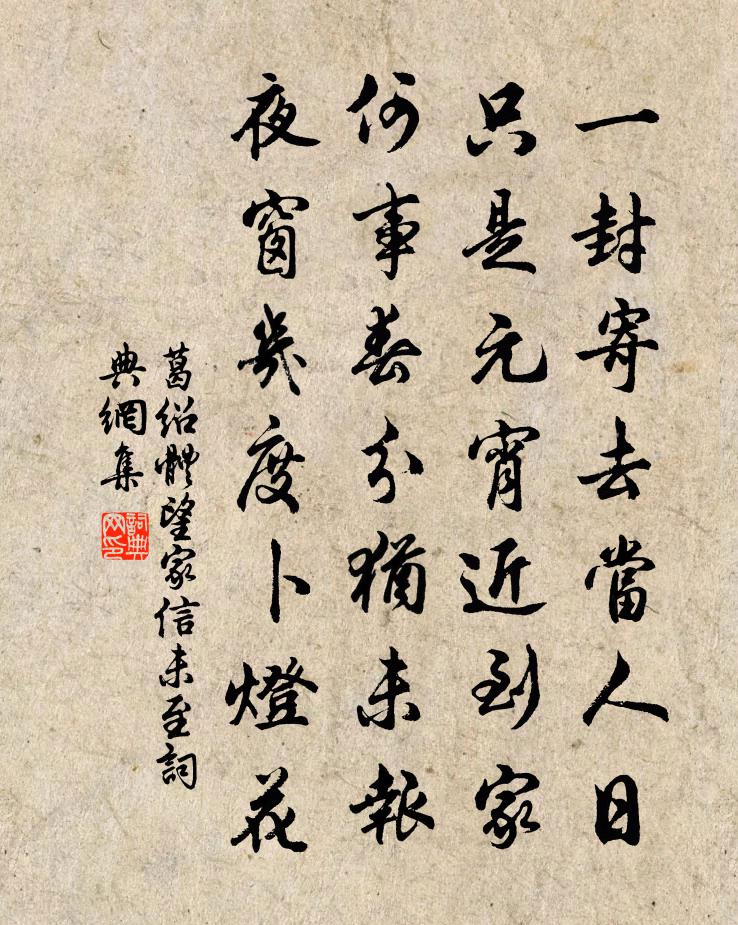 一封寄去當人日
只是元宵近到家
何事春分猶未報
夜窗幾度卜燈花
葛紹體望家信未至詞
典網集
詞典網印